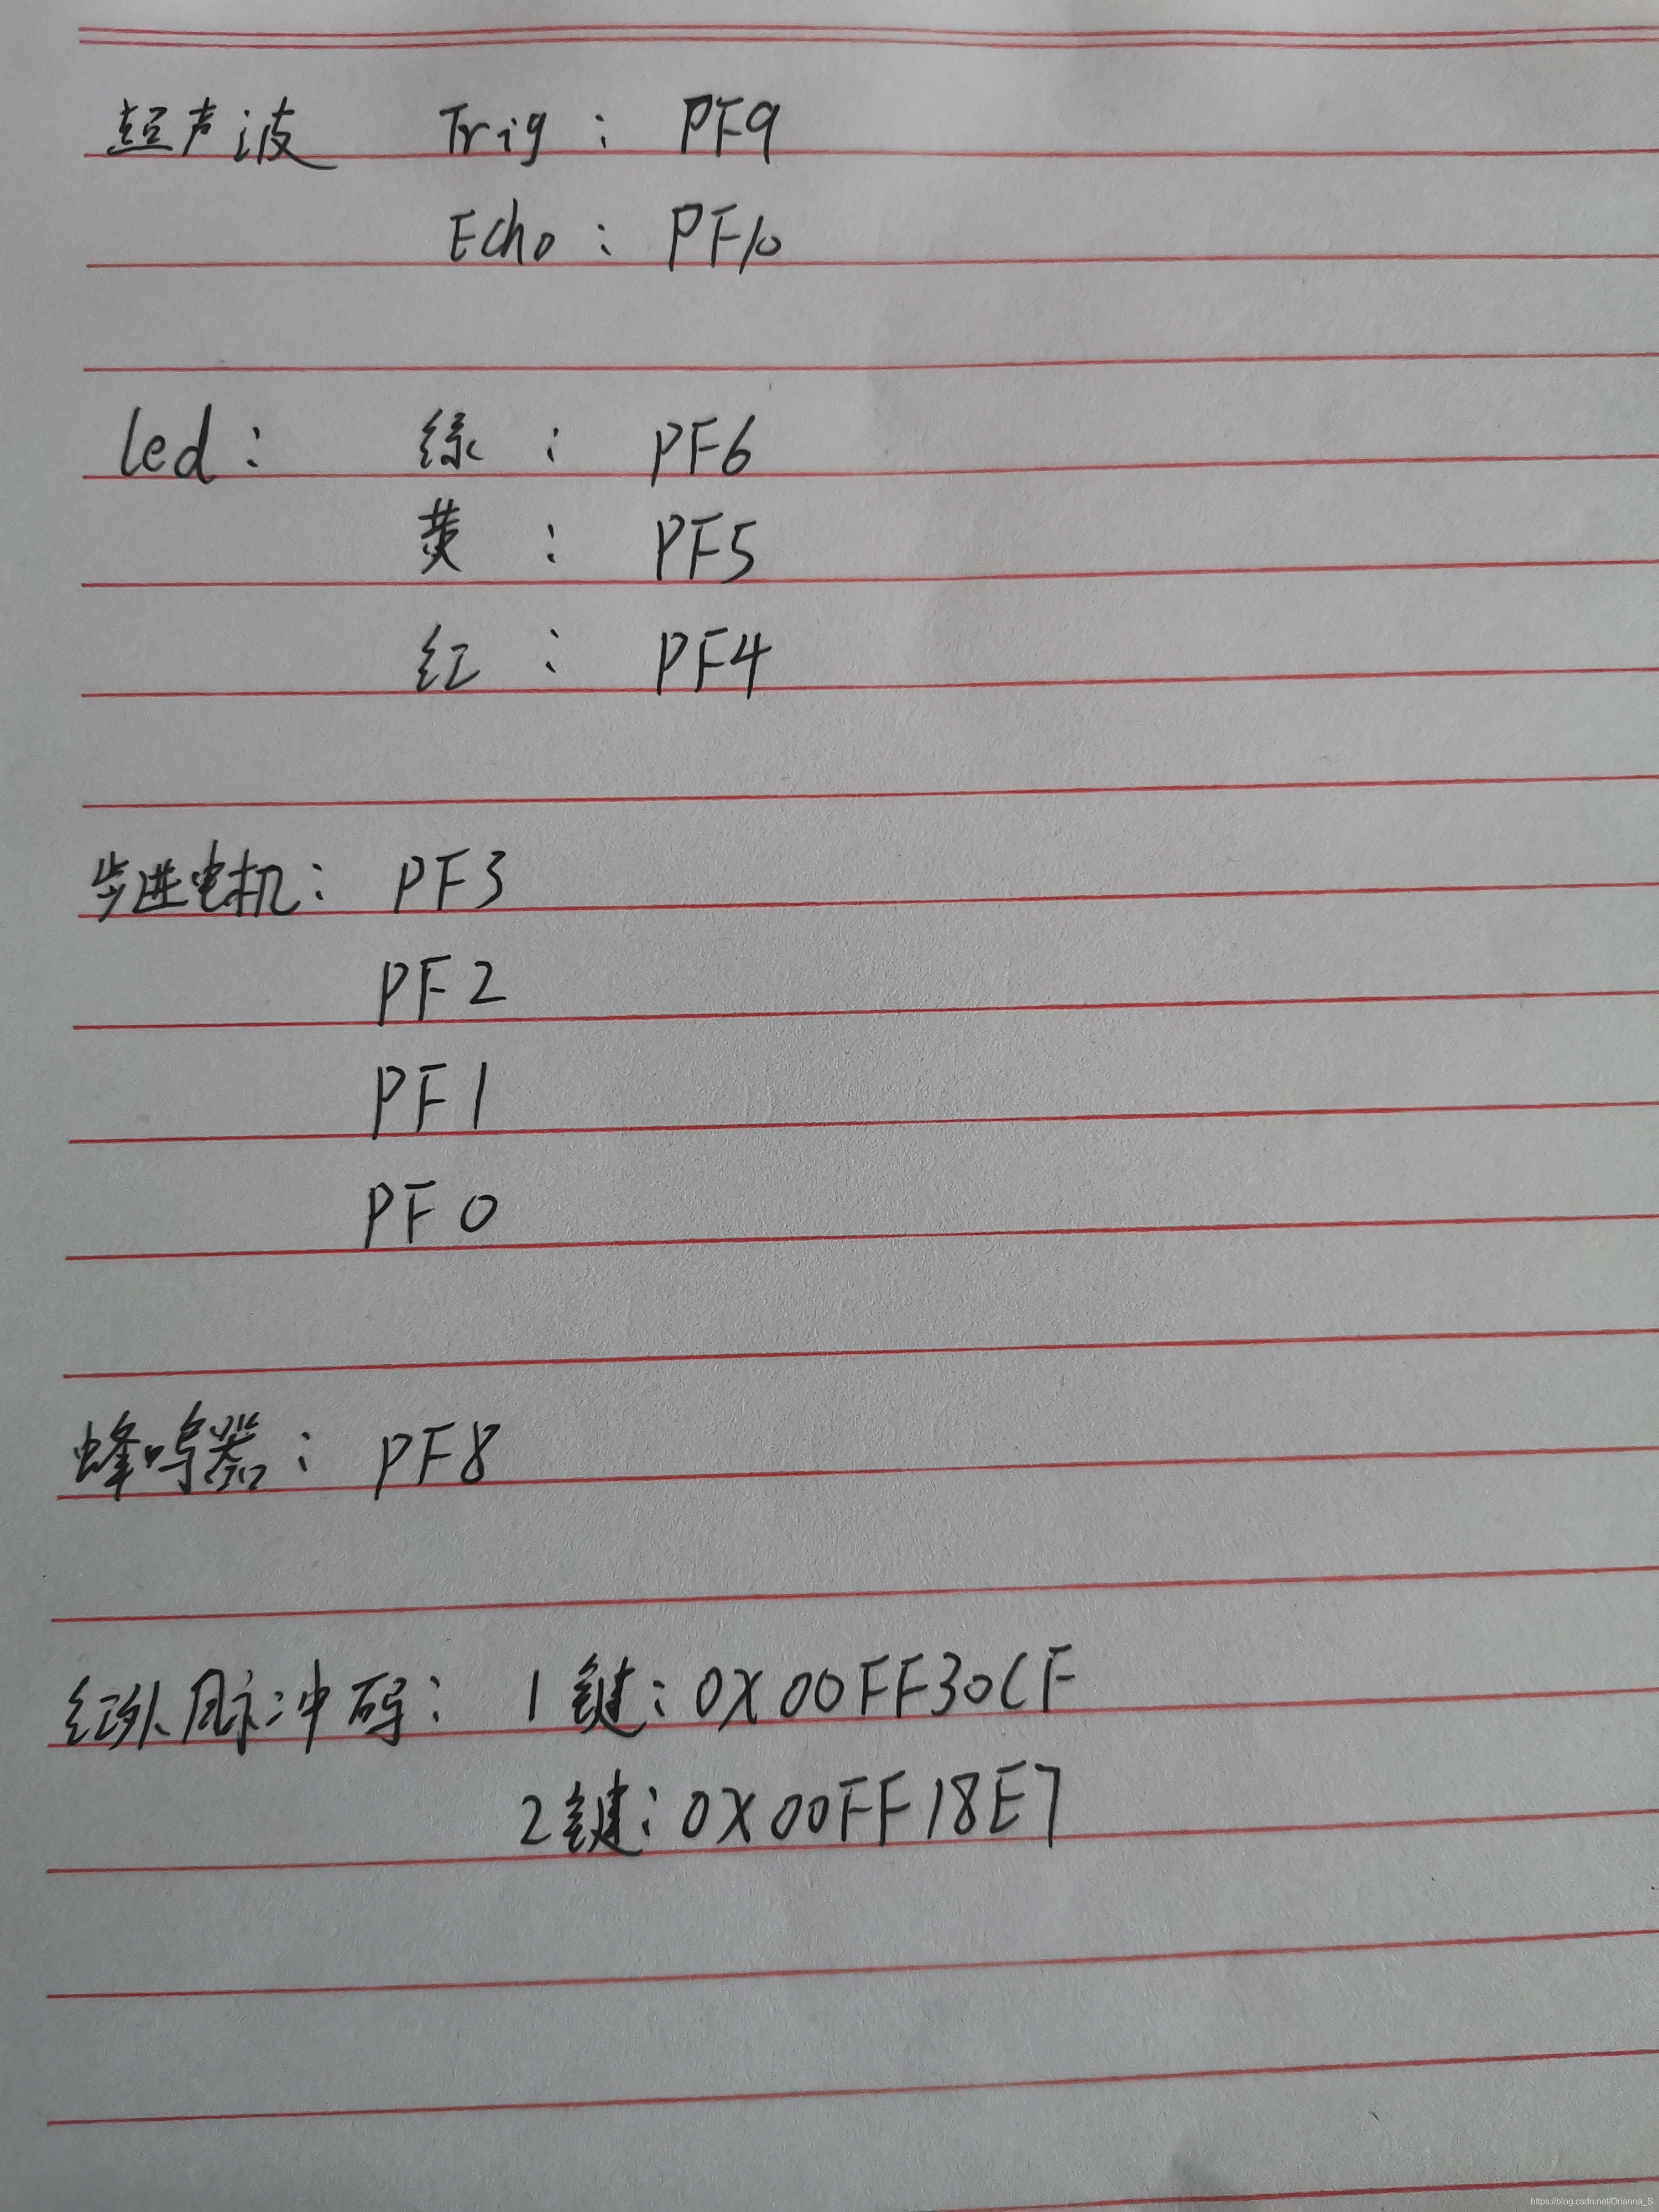 超声波 Trig : PF9
Echo : PF10
led : 绿 : PF6
黄 : PF5
红 : PF4
步进电机 : PF3
PF2
PF1
PF0
蜂鸣器 : PF8
红外脉冲码 : 1键 : 0X00FF30CF
2键 : 0X00FF18E7
https://blog.csdn.net/Orianna_S